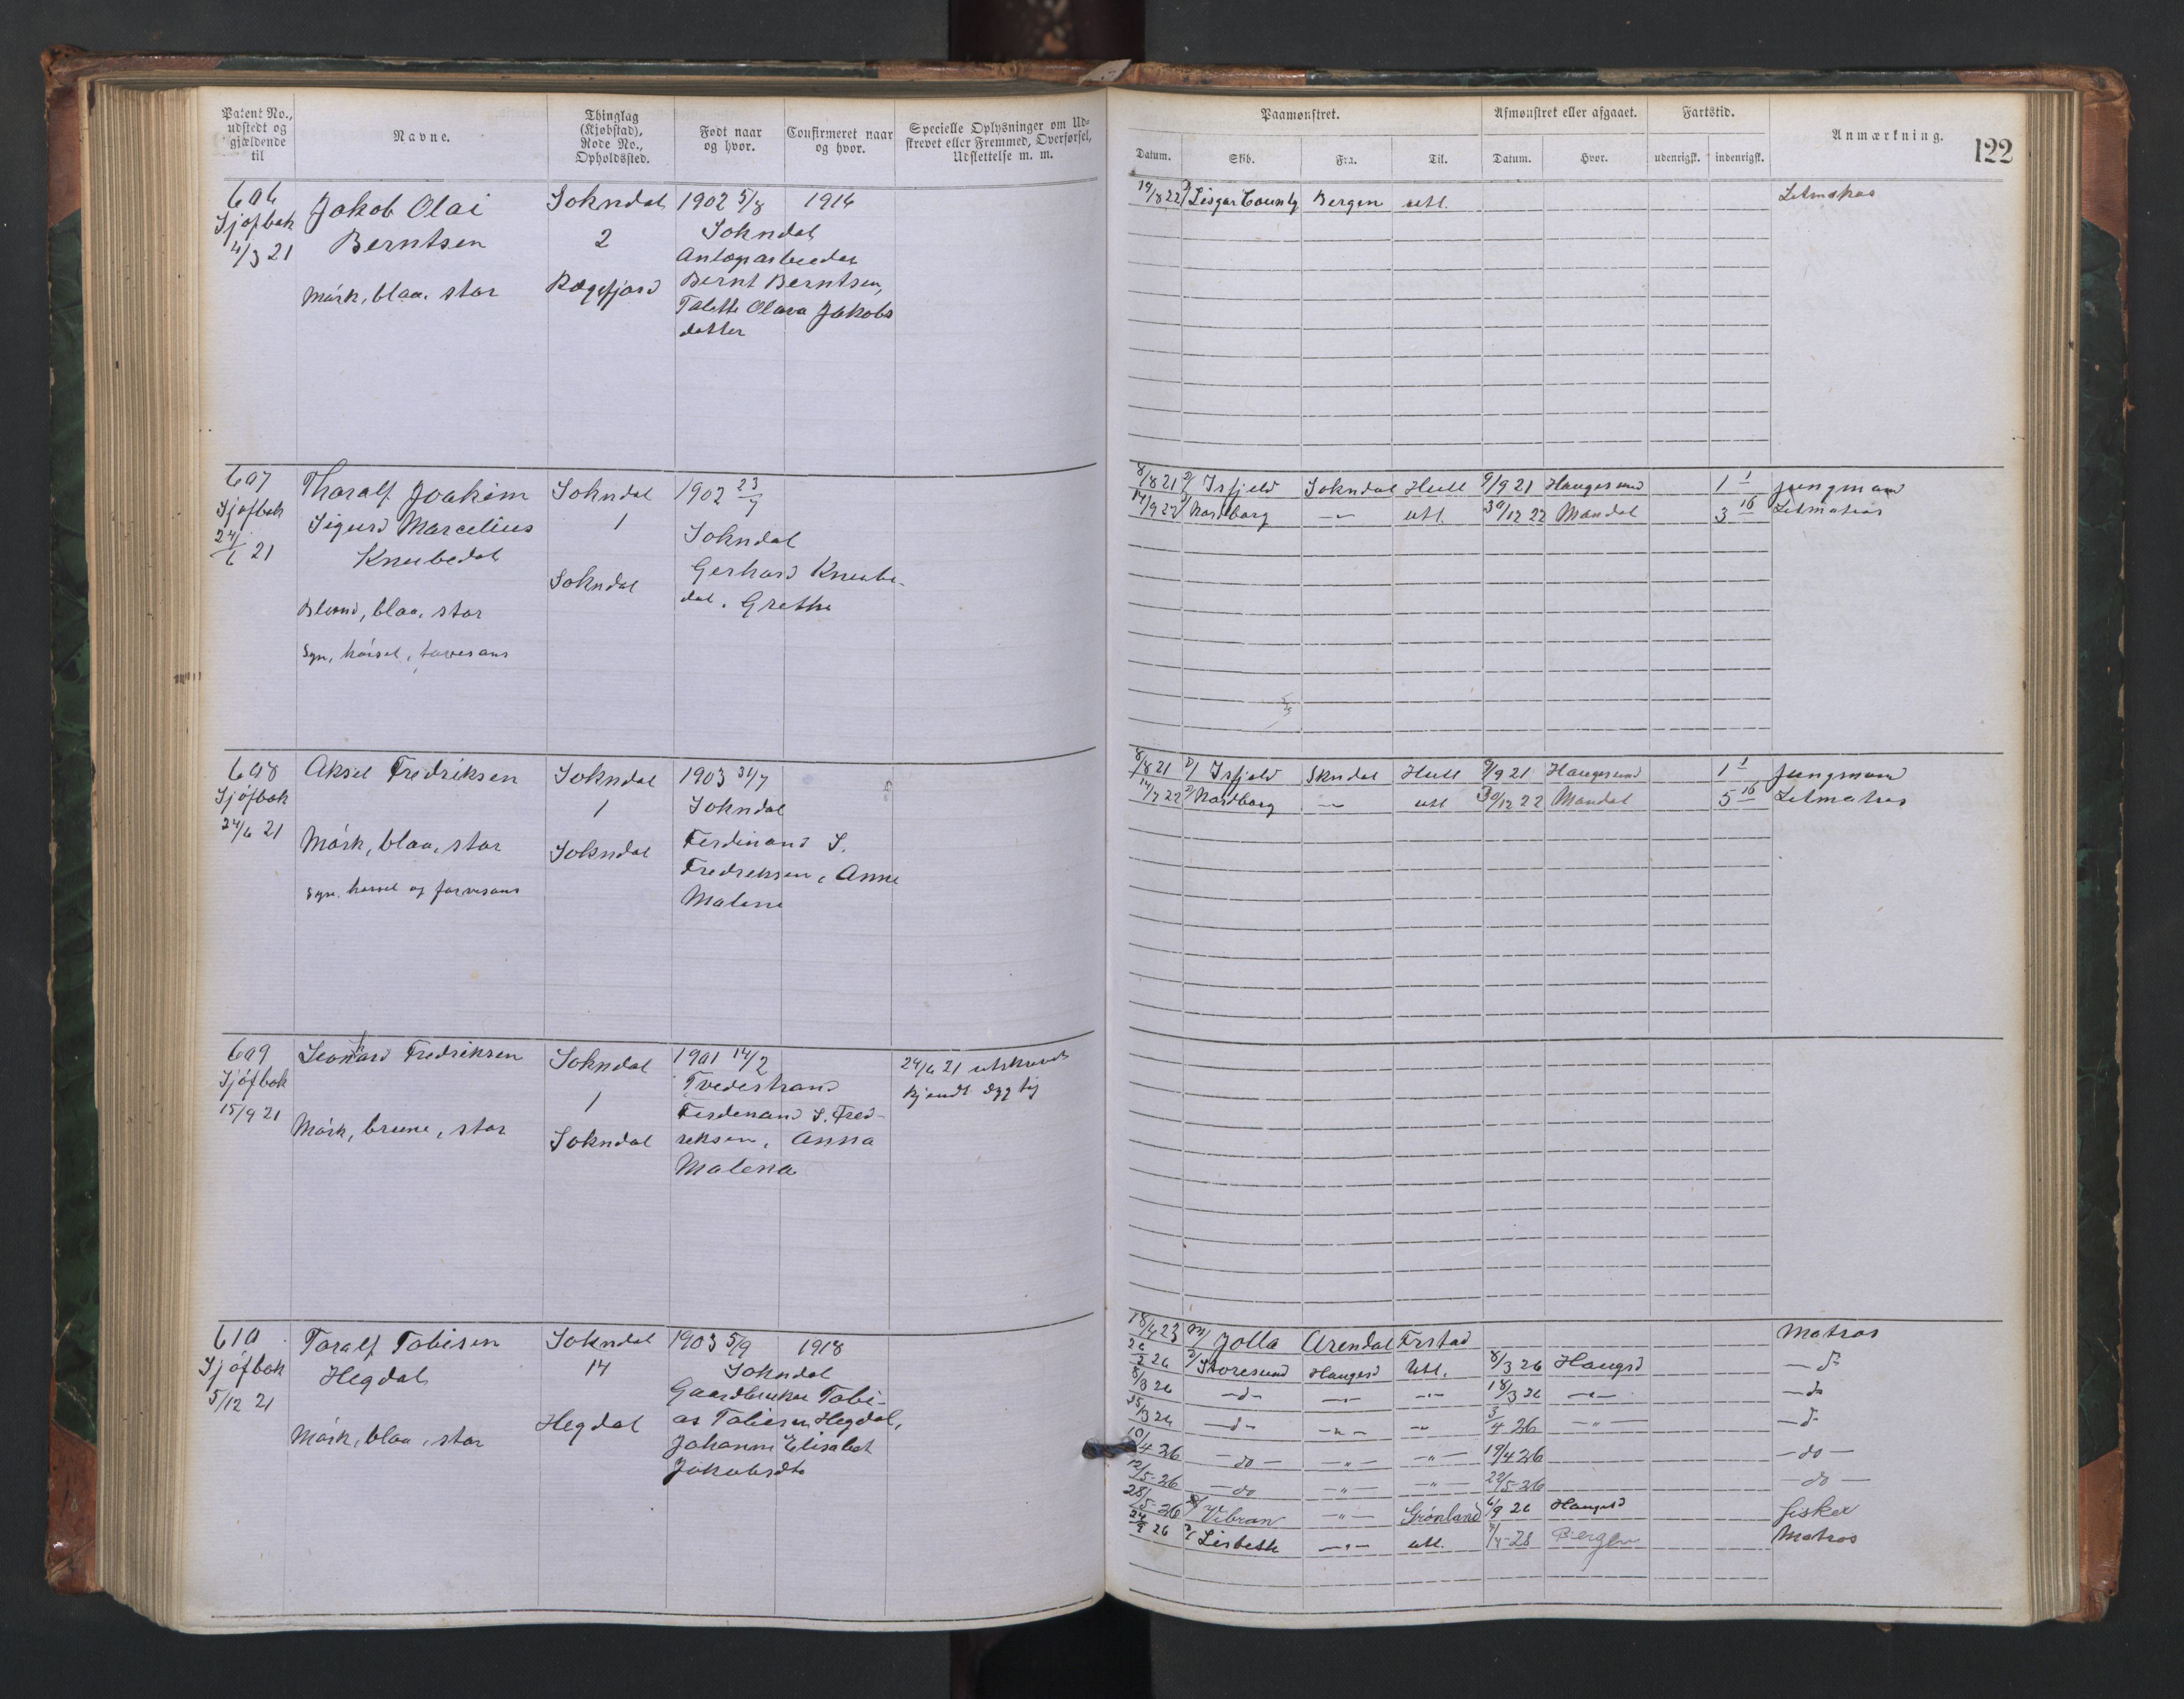 Patent No., udstedt og gjældende til
Navne.
Thinglag (Kjøbstad), Rode No., Opholdssted.
Født naar og hvor.
Confirmeret naar og hvor.
Specielle Oplysninger om Udskrevet eller Fremmed, Overførsel, Udslettelse m. m.
Paamønstret.
Afmønstret eller afgaaet.
Fartstid.
Anmærkning.
122
Datum. Skib. Fra. Til. Datum. Hvor. udenrigsk. indenrigsk.
606 Jakob Olai Sokndal 1902 5/8 1916
Sjøfbok Berntsen 2 Sokndal
4/3 21
Mörk, blaa, stor Rægefjord Bernt Berntsen,
Talette Olava Jakobs
datter
19/8 22 Lisgar County Bergen utl. Letmatros
607 Tharalf Joakim Sokndal 1902 23/7
Sjøfbok Sigurd Marcelius 1 Sokndal
24/6 21 Knubedal
Sokndal Gerhard Knube-
dal, Grethe
Blond, blaa, stor
Syn, hörsel, farvesans
8/8 21 Isfjeld Sokndal Hull 9/9 21 Haugesund 1 1 jungmand
14/9 22 Nordborg -"- utl. 30/12 22 Mandal 3 16 Letmatros
608 Aksel Fredriksen Sokndal 1903 31/7
Sjøfbok 1 Sokndal
24/6 21
Mörk, blaa, stor Sokndal Ferdinand S.
Fredriksen, Anne
Malene
Syn, hörsel og farvesans
8/8 21 Isfjeld Skndal Hull 9/9 21 Haugesund 1 1 Jungmand
14/7 22 Nordborg -"- utl 30/12 22 Mandal 5 16 Letmatros
609 Leonhard Fredriksen Sokndal 1901 14/2 24/6 21 utskrevet
Sjøfbok 1 Tvedestrand kjendt dygtig
15/9 21 Ferdinand S. Fred-
Mörk, brune, stor Sokndal reksen, Anna
Malena
610 Taralf Tobisen Sokndal 1903 5/9 1918
Sjøfbok Hegdal 14 Sokndal
5/12 21 Gaardbruker Tobi-
Mörk, blaa, stor Hegdal as Tobiesen Hegdal,
Johanne Elisabet
Jakobsdtr
18/4 23 Jolla Arendal Frstad Matros
26/2 26 Storesund Haugesd Utl. 8/3 26 Haugsd -d-
8/3 26 -d- -"- -"- 18/3 26 -"- -do
25/3 26 -d- -"- -"- 3/4 26 -"- -d-
10/4 26 -do- -"- -"- 19/4 26 -do-
12/5-26 -do -"- -"- 22/5-26 -do-
28/5-26 Vibran -"- Grønland 6/9 26 Haugesd fisker
24/9 26 Lisbeth -"- utl. 7/4-28 Bergen Matros